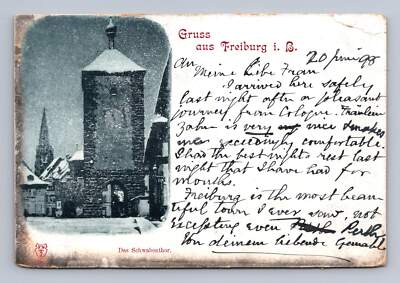 Gruss
aus Freiburg i. B.
20 Juni 98
An
Meine liebe Frau
I arrived here safely
last night after a pleasant
journey from Cologne. Fräulein
Zahn is very nice & makes
me exceedingly comfortable.
I had the best night's rest last
night that I have had for
months.
Freiburg is the most beau-
tiful town I ever saw, not
excepting even Perth
Von deinem liebende Gemahl
Das Schwabenthor.